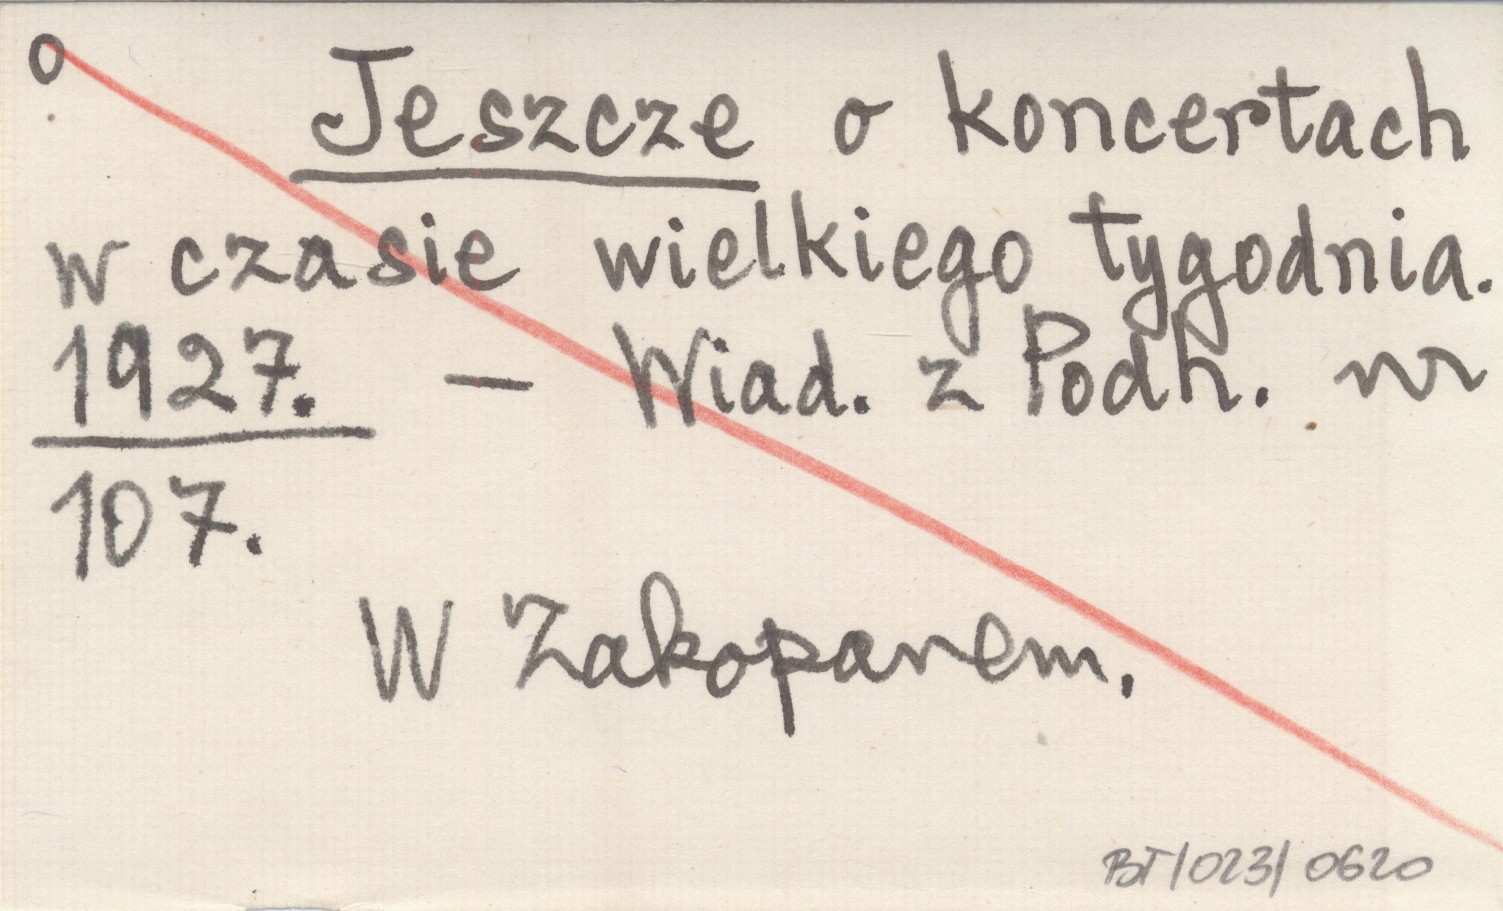 o
Jeszcze o koncertach
w czasie wielkiego tygodnia.
1927. — Wiad. z Podh. nr
107.
W Zakopanem.
BT/023/0620